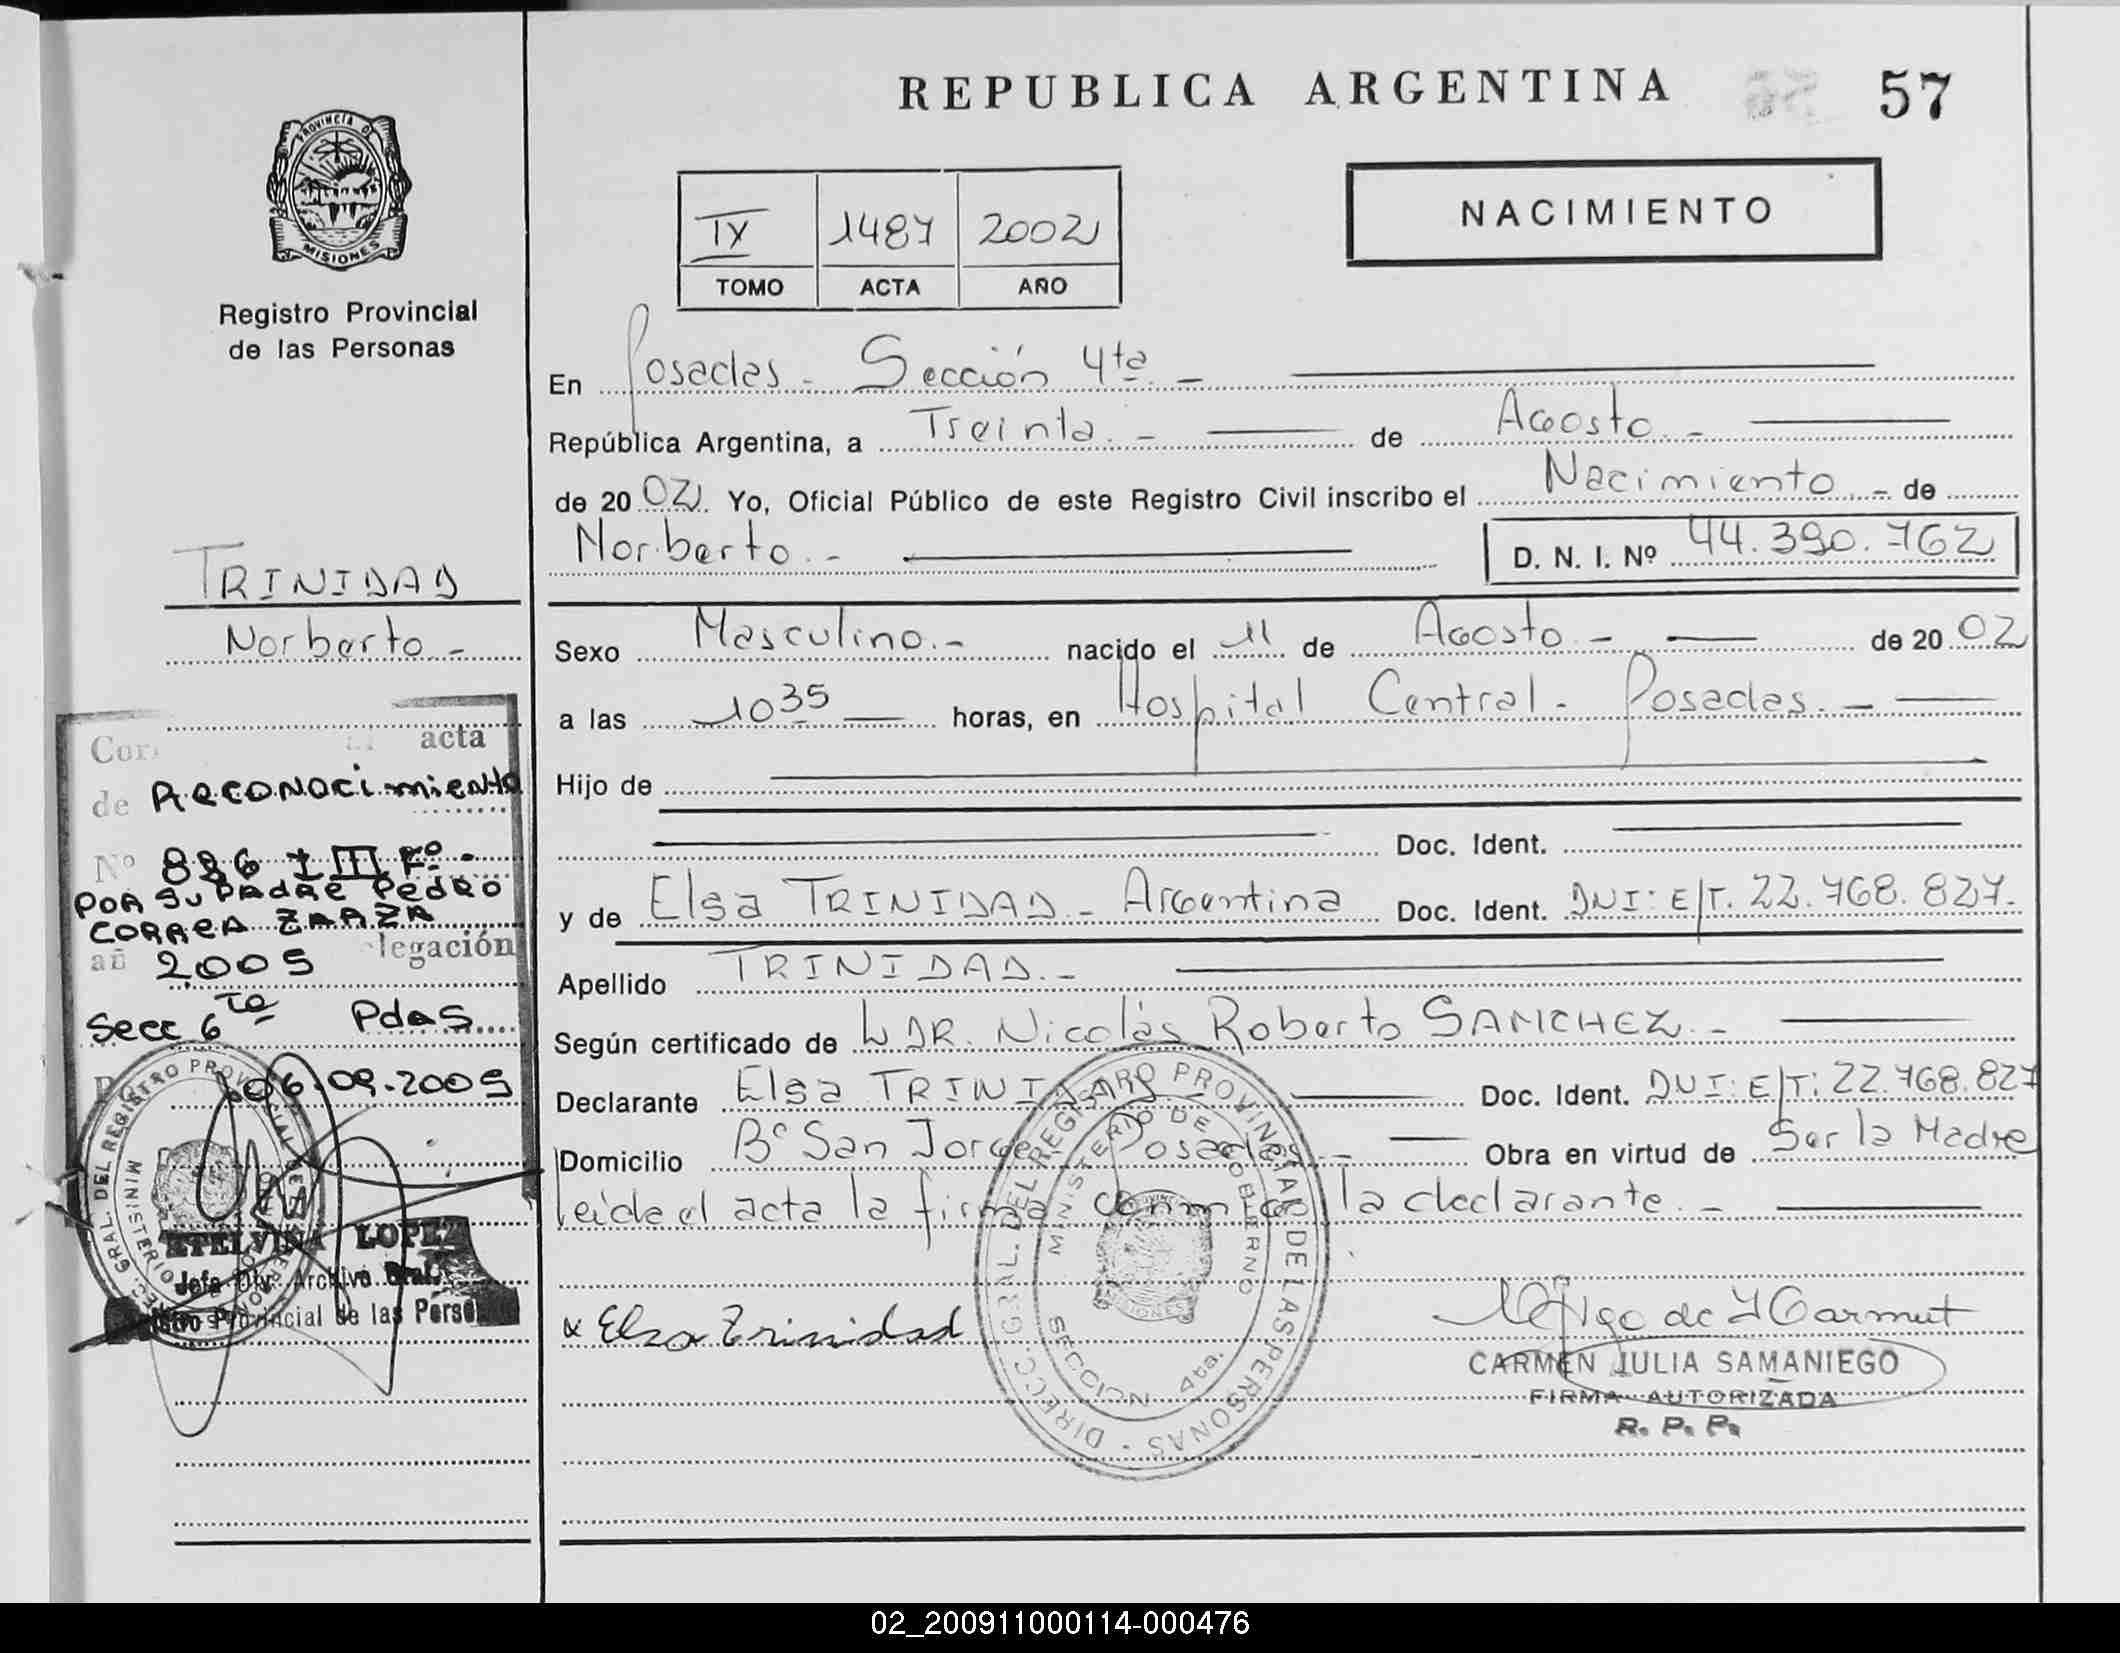 REPUBLICA ARGENTINA 57
PROVINCIA DE
MISIONES
Registro Provincial
de las Personas
IX 1487 2002
TOMO ACTA AÑO
NACIMIENTO
En Posadas - Sección 4ta. -
República Argentina, a Treinta. - de Agosto. -
de 20 02 Yo, Oficial Público de este Registro Civil inscribo el Nacimiento. - de
Norberto. - D. N. I. Nº 44.390.762
TRINIDAD
Norberto. -
Sexo Masculino. - nacido el 11 de Agosto. - de 20 02
a las 10 35 horas, en Hospital Central - Posadas. -
Hijo de
Doc. Ident.
y de Elsa TRINIDAD - Argentina Doc. Ident. DNI: E/T. 22.768.827.
Apellido TRINIDAD. -
Según certificado de DR. Nicolás Roberto SANCHEZ. -
Declarante Elsa TRINIDAD Doc. Ident. DNI: E/T: 22.768.827
Domicilio Bº San Jorge Posadas. - Obra en virtud de Ser la Madre
leida el acta la firma conmigo la declarante. -
x Elsa Trinidad
CARMEN JULIA SAMANIEGO
FIRMA AUTORIZADA
R. P. P.
DIRECC. GRAL. DEL REGISTRO PROVINCIAL DE LAS PERSONAS
MINISTERIO DE GOBIERNO
SECCION 4ta.
acta
de Reconocimiento
Nº 886 T III Fº -
POR SU PADRE PEDRO
CORREA ZARZA
añ 2.005 legación
Secc 6 ta Pdas
06.09.2005
ETELVINA LOPEZ
Jefa Archivo Gral.
Provincial de las Perso
02_200911000114-000476